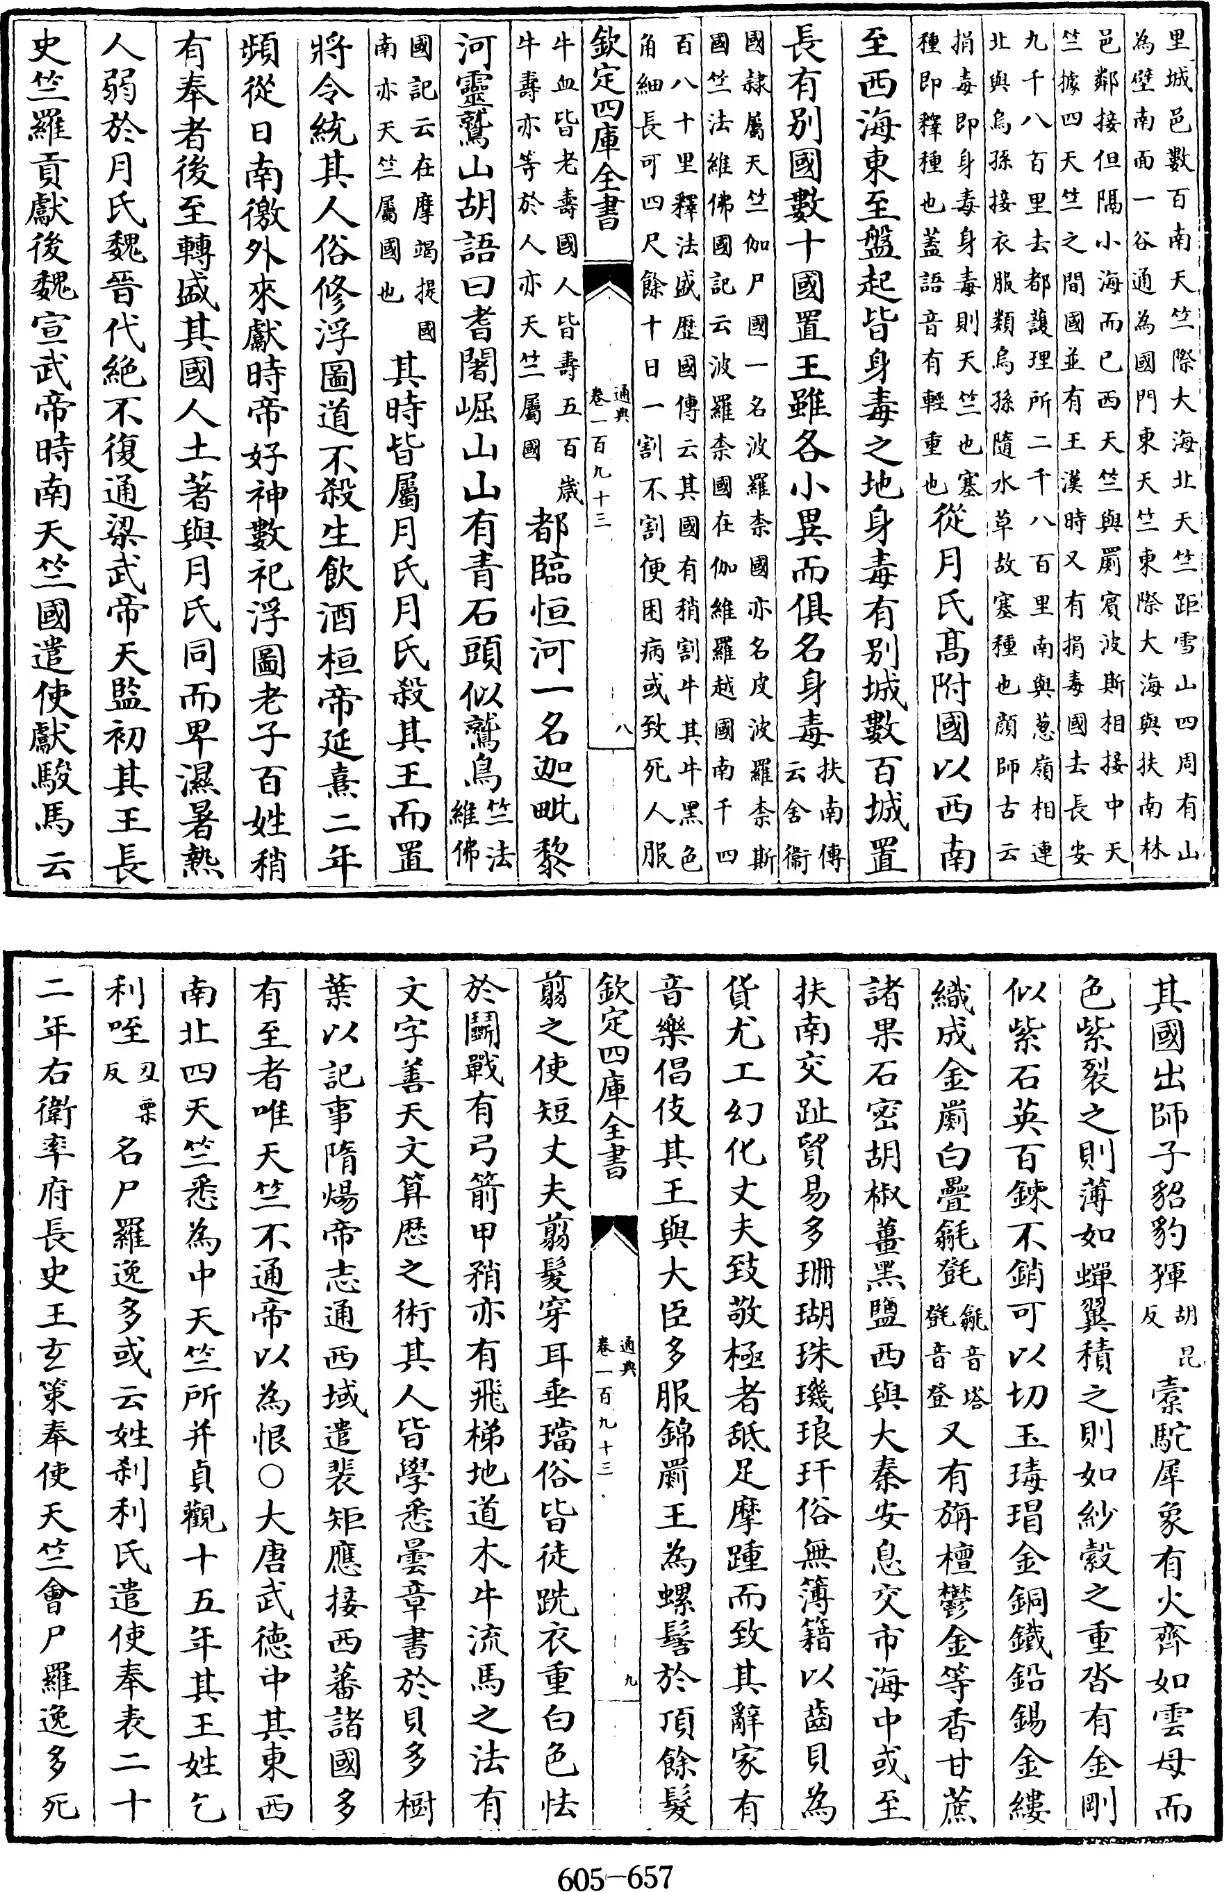 里城邑數百南天竺際大海北天竺距雪山四周有山
為壁南面一谷通為國門東天竺東際大海與扶南林
邑鄰接但隔小海而已西天竺與罽賓波斯相接中天
竺據四天竺之間國並有王漢時又有捐毒國去長安
九千八百里去都護理所二千八百里南與蔥嶺相連
北與烏孫接衣服類烏孫隨水草故塞種也顔師古云
捐毒即身毒身毒則天竺也塞
種即釋種也蓋語音有輕重也從月氏髙附國以西南
至西海東至盤起皆身毒之地身毒有別城數百城置
長有別國數十國置王雖各小異而俱名身毒扶南傳
云舍衞
國隷屬天竺伽尸國一名波羅柰國亦名皮波羅柰斯
國竺法維佛國記云波羅柰國在伽維羅越國南千四
百八十里釋法盛歴國傳云其國有稍割牛其牛黑色
角細長可四尺餘十日一割不割便困病或致死人服
欽定四庫全書
通典
卷一百九十三
八
牛血皆老壽國人皆壽五百歲
牛壽亦等於人亦天竺屬國都臨恒河一名迦毗黎
河靈鷲山胡語曰耆闍崛山山有青石頭似鷲鳥竺法
維佛
國記云在摩竭提國
南亦天竺屬國也其時皆屬月氏月氏殺其王而置
將令統其人俗修浮圖道不殺生飲酒桓帝延熹二年
頻從日南徼外來獻時帝好神數祀浮圖老子百姓稍
有奉者後至轉盛其國人土著與月氏同而卑濕暑熱
人弱於月氏魏晉代絶不復通梁武帝天監初其王長
史竺羅貢獻後魏宣武帝時南天竺國遣使獻駿馬云
其國出師子貂豹㹆胡昆
反橐駝犀象有火齊如雲母而
色紫裂之則薄如蟬翼積之則如紗縠之重沓有金剛
似紫石英百鍊不銷可以切玉瑇瑁金銅鐵鉛錫金縷
織成金罽白疊毾㲪毾音塔
㲪音登又有旃檀鬱金等香甘蔗
諸果石密胡椒薑黑鹽西與大秦安息交市海中或至
扶南交趾貿易多珊瑚珠璣琅玕俗無簿籍以齒貝為
貨尤工幻化丈夫致敬極者䑛足摩踵而致其辭家有
音樂倡伎其王與大臣多服錦罽王為螺髻於頂餘髮
欽定四庫全書
通典
卷一百九十三
九
翦之使短丈夫翦髮穿耳垂璫俗皆徒跣衣重白色怯
於鬭戰有弓箭甲矟亦有飛梯地道木牛流馬之法有
文字善天文算歴之術其人皆學悉曇章書於貝多樹
葉以記事隋煬帝志通西域遣裴矩應接西蕃諸國多
有至者唯天竺不通帝以為恨○大唐武德中其東西
南北四天竺悉為中天竺所并貞觀十五年其王姓乞
利咥丑栗
反名尸羅逸多或云姓刹利氏遣使奉表二十
二年右衞率府長史王𤣥策奉使天竺會尸羅逸多死
605-657